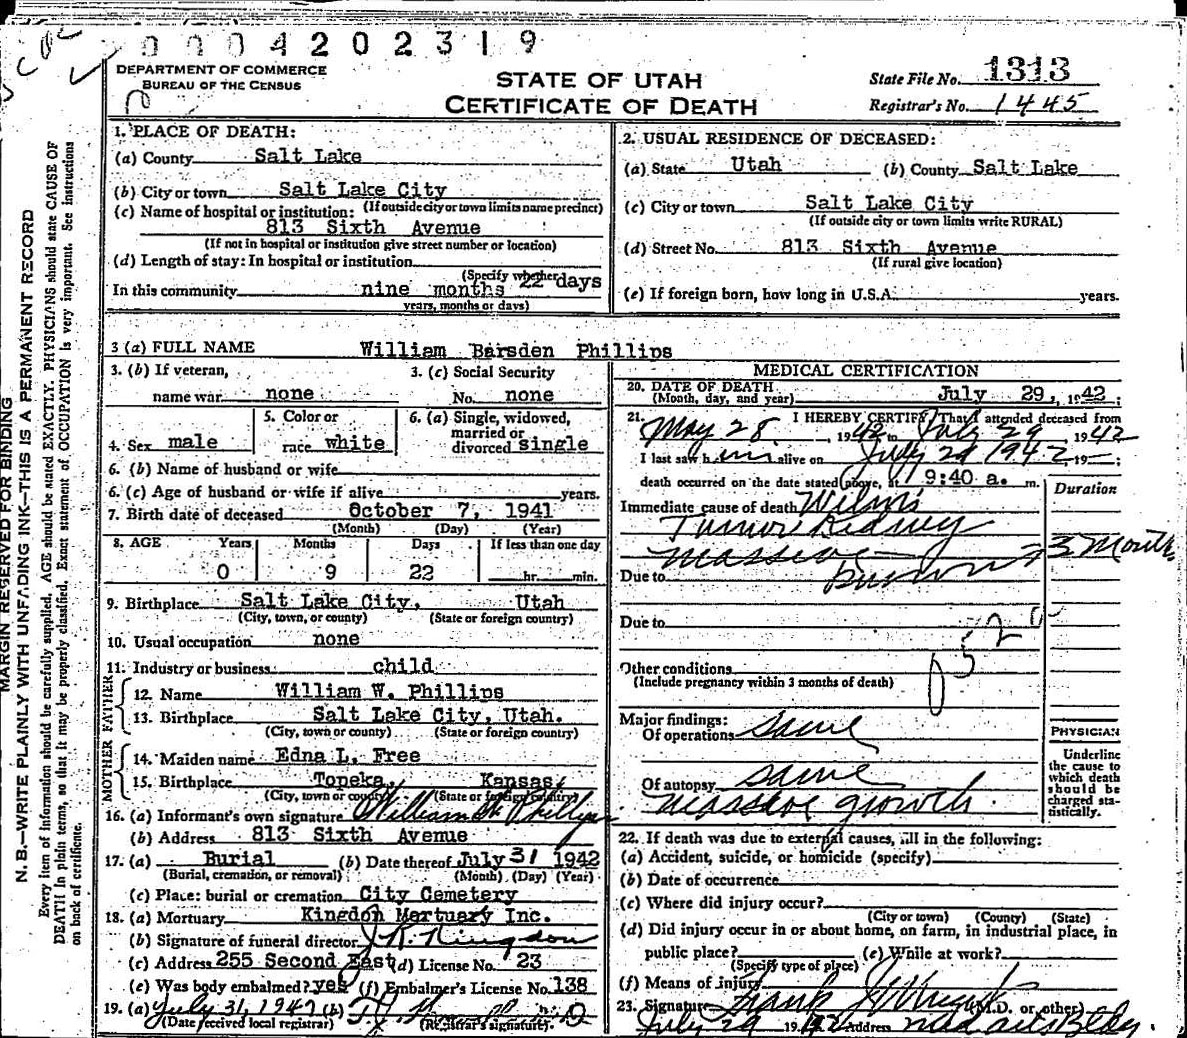 0004202319
DEPARTMENT OF COMMERCE
BUREAU OF THE CENSUS
STATE OF UTAH
CERTIFICATE OF DEATH
State File No. 1313
Registrar's No. 1445
MARGIN RESERVED FOR BINDING
N. B.—WRITE PLAINLY WITH UNFADING INK—THIS IS A PERMANENT RECORD
Every item of information should be carefully supplied. AGE should be stated EXACTLY. PHYSICIANS should state CAUSE OF
DEATH in plain terms, so that it may be properly classified. Exact statement of OCCUPATION is very important. See instructions
on back of certificate.
1. PLACE OF DEATH:
(a) County Salt Lake
(b) City or town Salt Lake City
(If outside city or town limits name precinct)
(c) Name of hospital or institution:
813 Sixth Avenue
(If not in hospital or institution give street number or location)
(d) Length of stay: In hospital or institution
(Specify whether
In this community nine months 22 days
years, months or days)
2. USUAL RESIDENCE OF DECEASED:
(a) State Utah (b) County Salt Lake
(c) City or town Salt Lake City
(If outside city or town limits write RURAL)
(d) Street No. 813 Sixth Avenue
(If rural give location)
(e) If foreign born, how long in U.S.A. years.
3 (a) FULL NAME William Barsden Phillips
3. (b) If veteran,
name war none
3. (c) Social Security
No. none
4. Sex male
5. Color or
race white
6. (a) Single, widowed,
married or
divorced single
6. (b) Name of husband or wife
6. (c) Age of husband or wife if alive years.
7. Birth date of deceased October 7, 1941
(Month) (Day) (Year)
8. AGE Years Months Days If less than one day
0 9 22 hr. min.
9. Birthplace Salt Lake City, Utah
(City, town, or county) (State or foreign country)
10. Usual occupation none
11. Industry or business child
FATHER
12. Name William W. Phillips
13. Birthplace Salt Lake City, Utah.
(City, town or county) (State or foreign country)
MOTHER
14. Maiden name Edna L. Free
15. Birthplace Topeka, Kansas,
(City, town or county) (State or foreign country)
16. (a) Informant's own signature William W. Phillips
(b) Address 813 Sixth Avenue
17. (a) Burial (b) Date thereof July 31 1942
(Burial, cremation, or removal) (Month) (Day) (Year)
(c) Place: burial or cremation City Cemetery
18. (a) Mortuary Kingdon Mortuary Inc.
(b) Signature of funeral director J R. Kingdon
(c) Address 255 Second East (d) License No. 23
(e) Was body embalmed? yes (f) Embalmer's License No. 138
19. (a) July 31, 1942 (b)
(Date received local registrar) (Registrar's signature).
MEDICAL CERTIFICATION
20. DATE OF DEATH July 29, 1942;
(Month, day, and year)
21. I HEREBY CERTIFY, That I attended deceased from
May 28, 1942 to July 29 1942
I last saw him alive on July 29 1942, 19 ;
death occurred on the date stated above, at 9:40 a. m.
Duration
Immediate cause of death Wilms
Tumor Kidney
massive
3 Month
Due to
Due to
052
Other conditions
(Include pregnancy within 3 months of death)
Major findings:
Of operations same
Of autopsy same
massive growth
PHYSICIAN
Underline
the cause to
which death
should be
charged sta-
tistically.
22. If death was due to external causes, fill in the following:
(a) Accident, suicide, or homicide (specify)
(b) Date of occurrence
(c) Where did injury occur?
(City or town) (County) (State)
(d) Did injury occur in or about home, on farm, in industrial place, in
public place? (e) While at work?
(Specify type of place)
(f) Means of injury
23. Signature Frank (M.D. or other)
July 29 1942 Address Med arts Bldg.